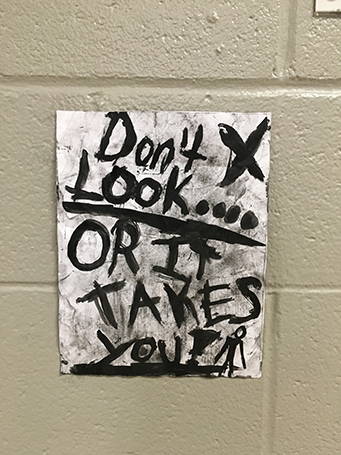 Don't X
LOOK....
OR IT
TAKES
YOU!